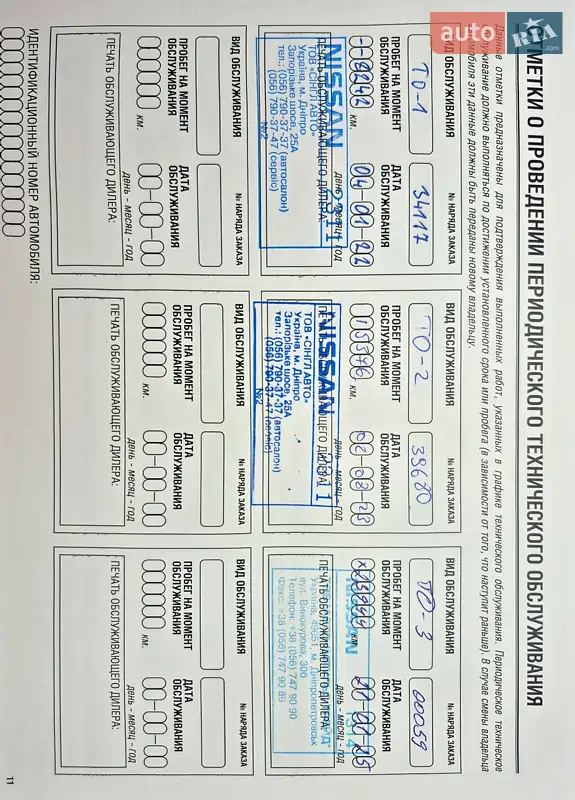 ОТМЕТКИ О ПРОВЕДЕНИИ ПЕРИОДИЧЕСКОГО ТЕХНИЧЕСКОГО ОБСЛУЖИВАНИЯ
Данные отметки предназначены для подтверждения выполненных работ, указанных в графике технического обслуживания. Периодическое техническое
обслуживание должно выполняться по достижении установленного срока или пробега (в зависимости от того, что наступит раньше). В случае смены владельца
автомобиля эти данные должны быть переданы новому владельцу.
ВИД ОБСЛУЖИВАНИЯ
№ НАРЯДА ЗАКАЗА
ТО-1
34117
ПРОБЕГ НА МОМЕНТ ОБСЛУЖИВАНИЯ
ДАТА ОБСЛУЖИВАНИЯ
км.
04-01-22
день - месяц - год
ПЕЧАТЬ ОБСЛУЖИВАЮЩЕГО ДИЛЕРА:
NISSAN 2311
ТОВ «СІНГЛ АВТО»
Україна, м. Дніпро
Запорізьке шосе, 25А
тел.: (056) 790-37-37 (автосалон)
(056) 790-37-47 (сервіс)
№2
ВИД ОБСЛУЖИВАНИЯ
№ НАРЯДА ЗАКАЗА
ТО-2
39680
ПРОБЕГ НА МОМЕНТ ОБСЛУЖИВАНИЯ
ДАТА ОБСЛУЖИВАНИЯ
км.
02-03-23
день - месяц - год
ПЕЧАТЬ ОБСЛУЖИВАЮЩЕГО ДИЛЕРА:
NISSAN 2311
ТОВ «СІНГЛ АВТО»
Україна, м. Дніпро
Запорізьке шосе, 25А
тел.: (056) 790-37-37 (автосалон)
(056) 790-37-47 (сервіс)
№2
ВИД ОБСЛУЖИВАНИЯ
№ НАРЯДА ЗАКАЗА
ТО-3
00059
ПРОБЕГ НА МОМЕНТ ОБСЛУЖИВАНИЯ
ДАТА ОБСЛУЖИВАНИЯ
км.
день - месяц - год
ПЕЧАТЬ ОБСЛУЖИВАЮЩЕГО ДИЛЕРА:
NISSAN
Україна, 49051, м. Дніпропетровськ
вул. Винокурова, 30б
Телефон: +38 (056) 747 90 90
Факс: +38 (056) 747 90 89
ВИД ОБСЛУЖИВАНИЯ
№ НАРЯДА ЗАКАЗА
ПРОБЕГ НА МОМЕНТ ОБСЛУЖИВАНИЯ
ДАТА ОБСЛУЖИВАНИЯ
км.
день - месяц - год
ПЕЧАТЬ ОБСЛУЖИВАЮЩЕГО ДИЛЕРА:
ВИД ОБСЛУЖИВАНИЯ
№ НАРЯДА ЗАКАЗА
ПРОБЕГ НА МОМЕНТ ОБСЛУЖИВАНИЯ
ДАТА ОБСЛУЖИВАНИЯ
км.
день - месяц - год
ПЕЧАТЬ ОБСЛУЖИВАЮЩЕГО ДИЛЕРА:
ВИД ОБСЛУЖИВАНИЯ
№ НАРЯДА ЗАКАЗА
ПРОБЕГ НА МОМЕНТ ОБСЛУЖИВАНИЯ
ДАТА ОБСЛУЖИВАНИЯ
км.
день - месяц - год
ПЕЧАТЬ ОБСЛУЖИВАЮЩЕГО ДИЛЕРА:
ИДЕНТИФИКАЦИОННЫЙ НОМЕР АВТОМОБИЛЯ:
11
auto RIA.com